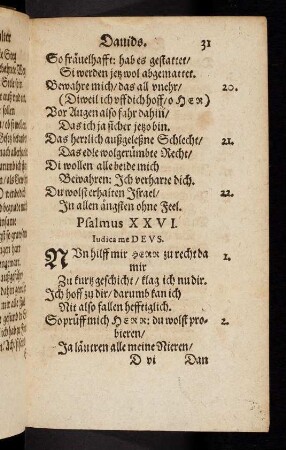 Dauids. 31
So fräuelhafft: hab es gestattet/
Si werden jetz wol abgemattet.
Bewahre mich/ das all vnehr/ 20.
(Diweil ich vff dich hoff/ o HER)
Vor Augen also fahr dahin/
Das ich ja sicher jetzo bin.
Das herlich außgelesne Schlecht/ 21.
Das edle wolgerümbte Recht/
Di wollen alle beide mich
Bewahren: Ich verharre dich.
Du wolst erhalten Israel/ 22.
In allen ängsten ohne Feel.
Psalmus XXVI.
Iudica me DEVS.
NVn hilff mir HERR zu recht da 1.
mir
Zu kurtz geschicht/ klag ich nu dir.
Ich hoff zu dir/ darumb kan ich
Nit also fallen hefftiglich.
So prüff mich HERR: du wolst pro- 2.
bieren/
Ja läutren alle meine Nieren/
D vi Dan